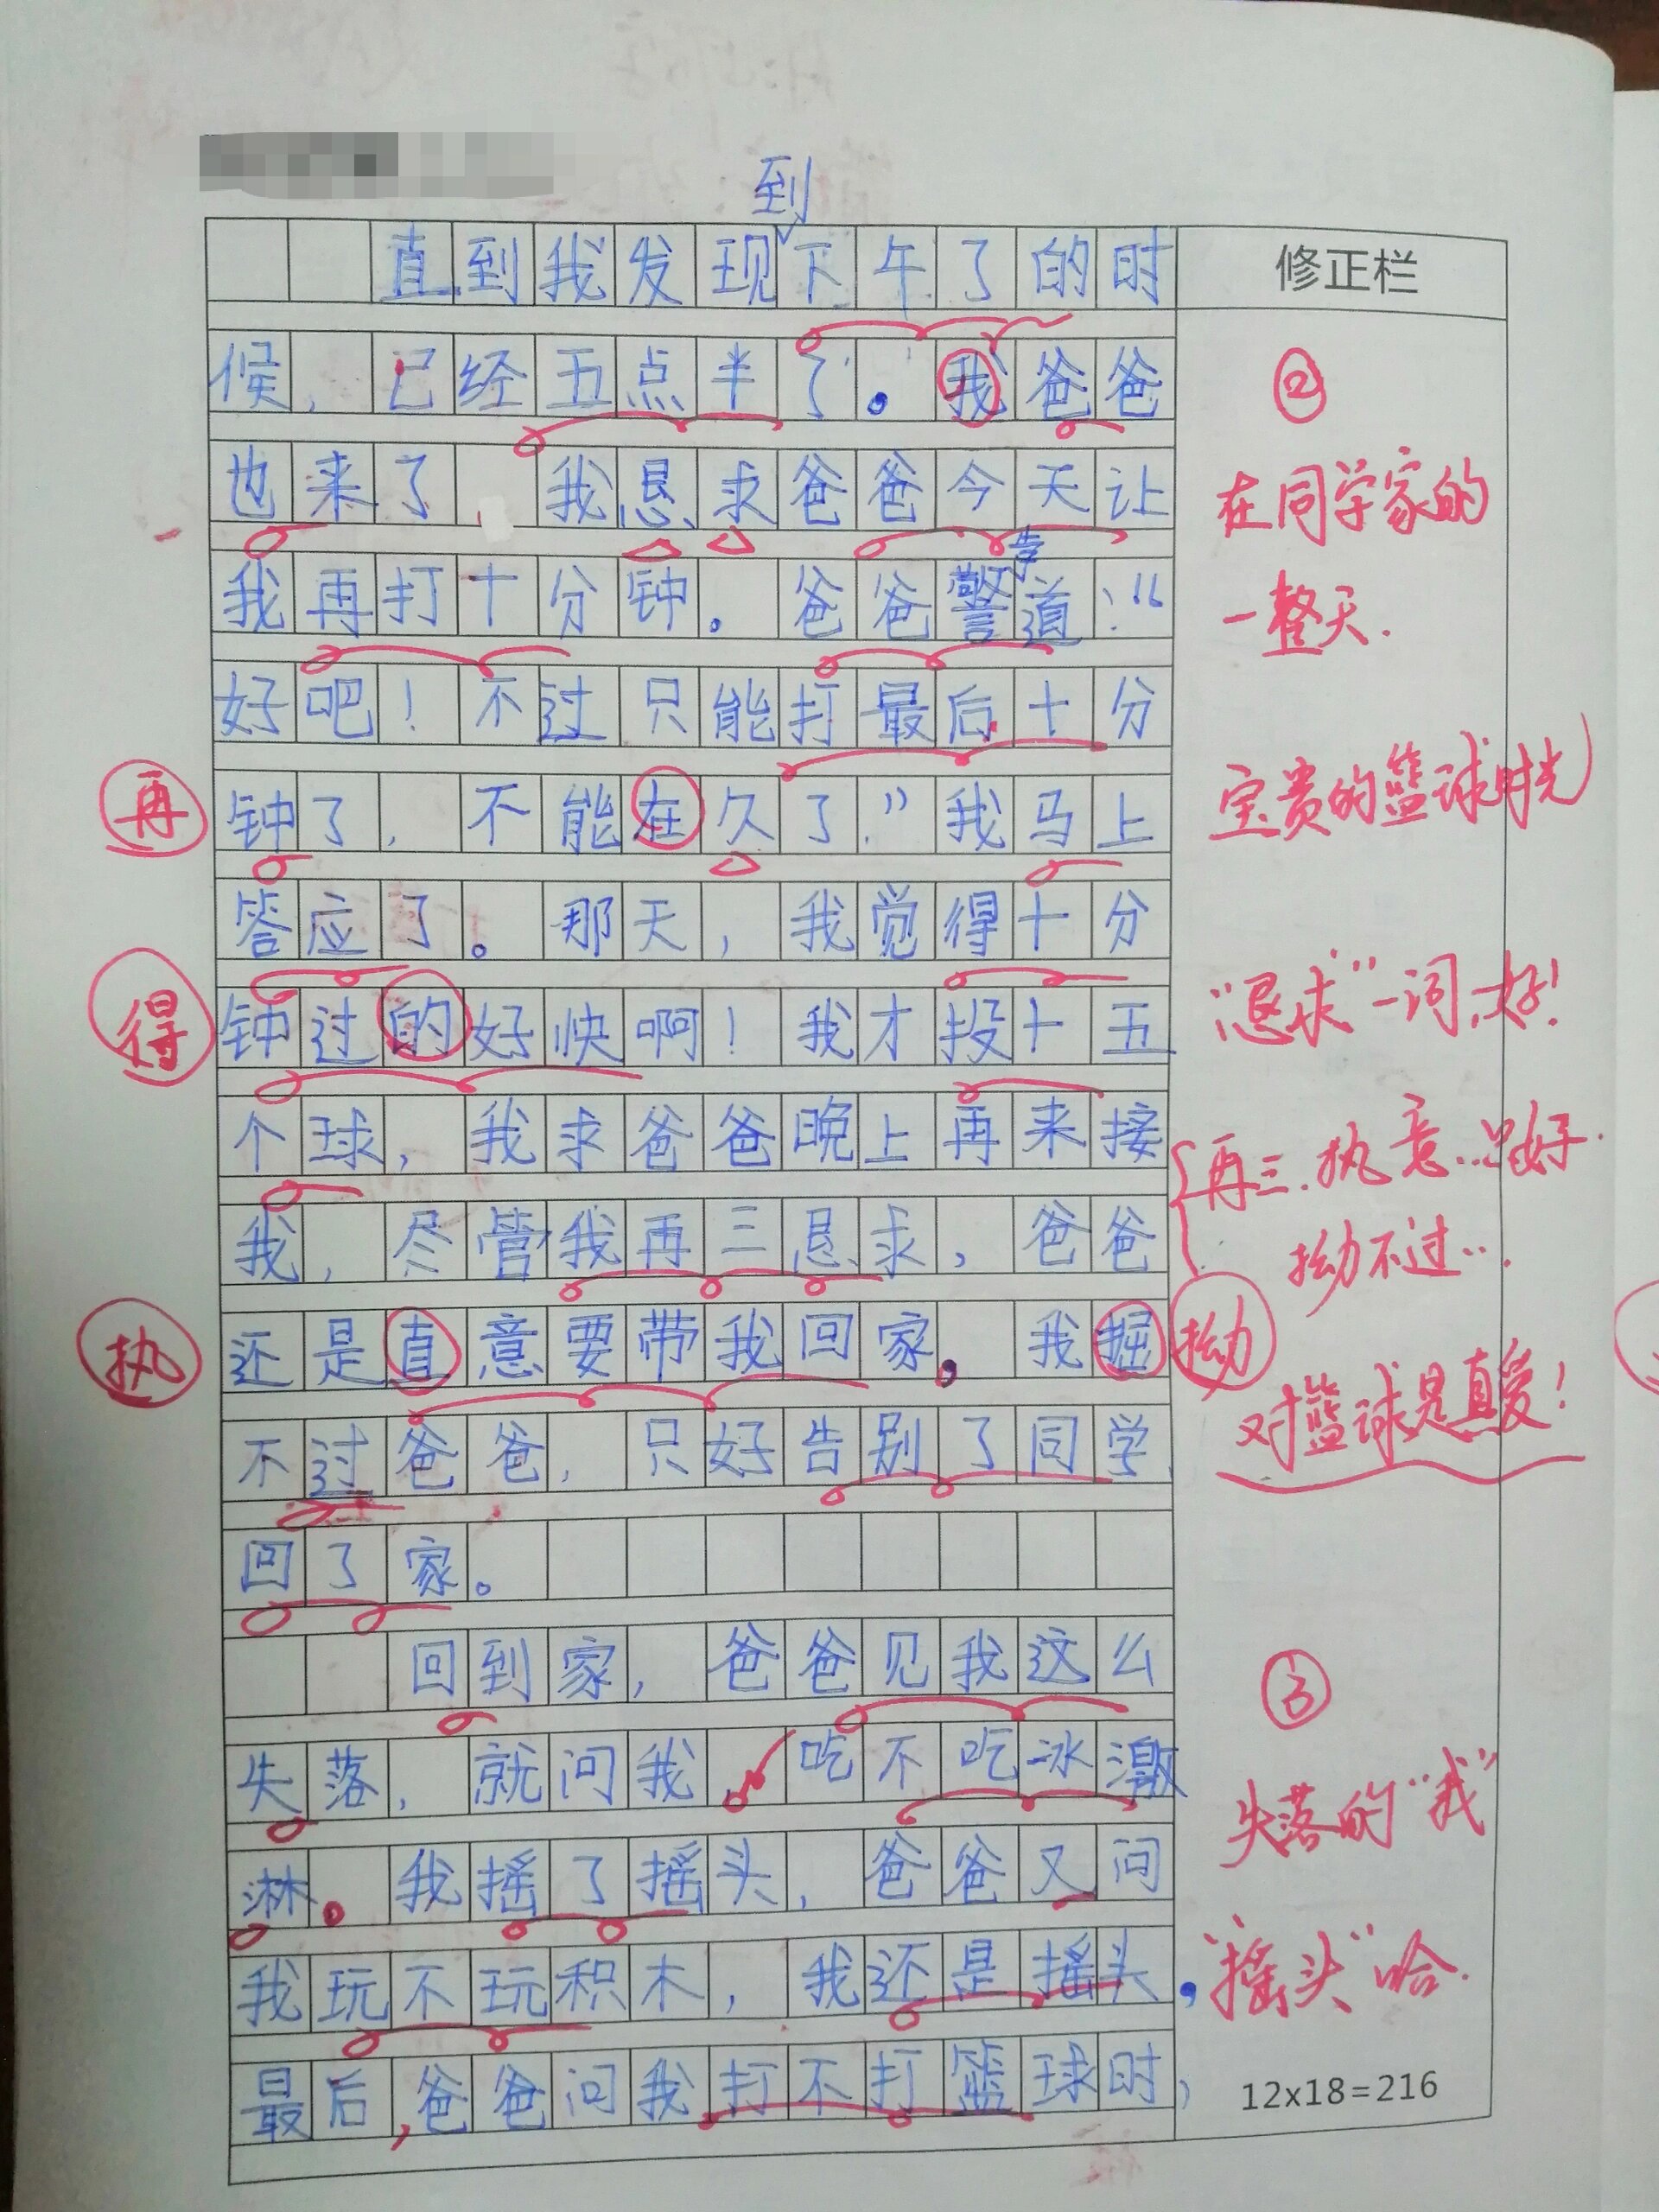 到
直到我发现下午了的时
修正栏
候，已经五点半了。我爸爸
②
也来了，我恳求爸爸今天让
在同学家的
告
我再打十分钟。爸爸警道：“
一整天.
好吧！不过只能打最后十分
再
钟了，不能在久了.”我马上
宝贵的篮球时光
答应了。那天，我觉得十分
得
钟过的好快啊！我才投十五
“恳求”一词，好！
个球，我求爸爸晚上再来接
再三.执意...只好.
我，尽管我再三恳求，爸爸
拗不过...
执
还是直意要带我回家。我掘
拗
对篮球是真爱！
不过爸爸，只好告别了同学
回了家。
回到家，爸爸见我这么
③
失落，就问我，吃不吃冰激
失落的“我”
淋。我摇了摇头，爸爸又问
我玩不玩积木，我还是摇头，
“摇头”哈.
最后，爸爸问我打不打篮球时，
12x18=216